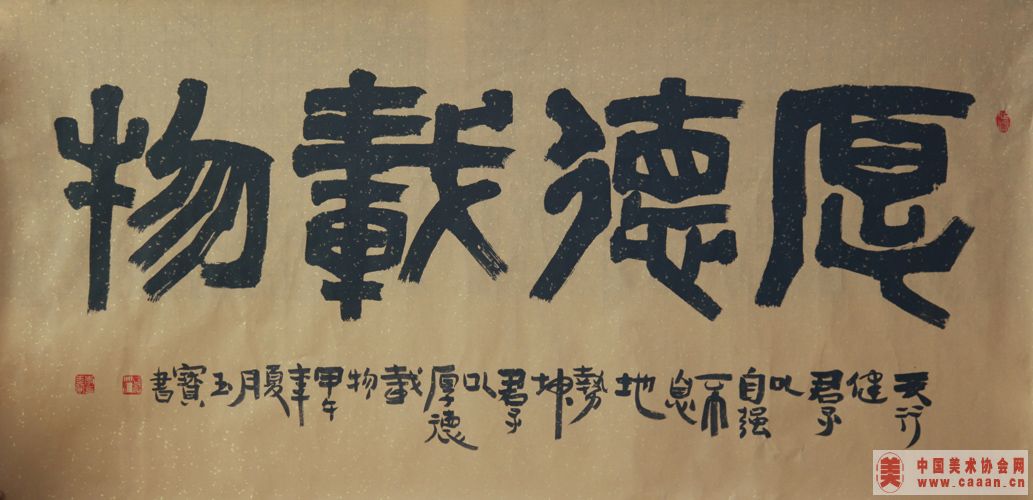 厚德載物
天行健君子以自强不息地勢坤君子以厚德載物甲午年夏月玉寶書
美
中国美术协会网
www.caaan.cn